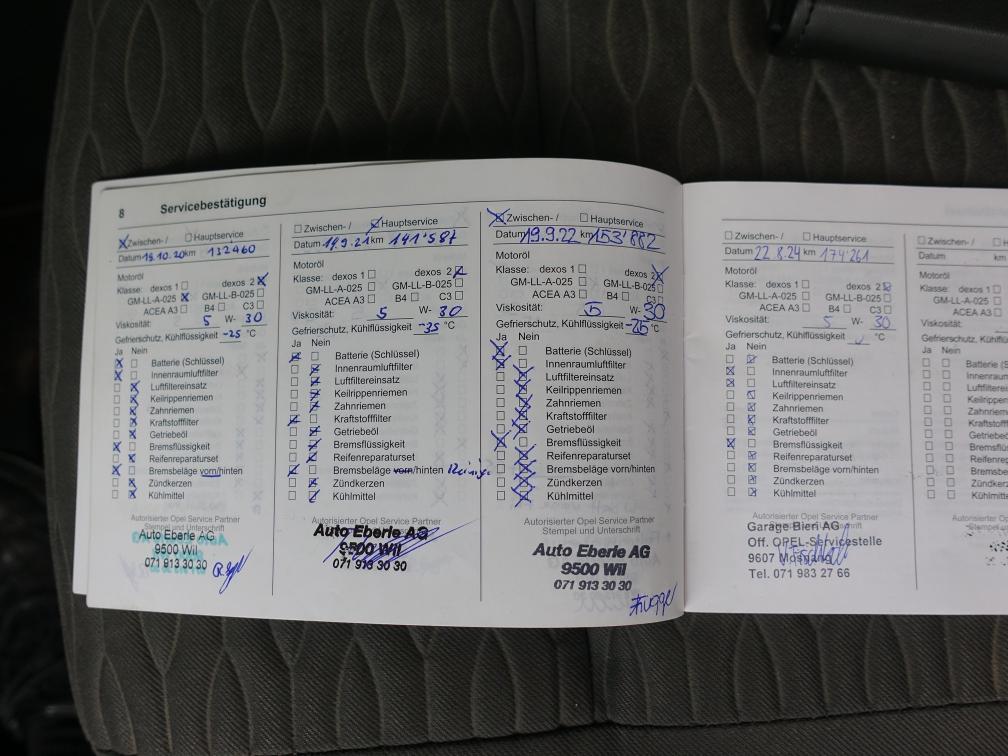 8 Servicebestätigung
Zwischen- / Hauptservice
Datum 15.10.20 km 132460
Motoröl
Klasse: dexos 1 dexos 2
GM-LL-A-025 GM-LL-B-025
ACEA A3 B4 C3
Viskosität: 5 W- 30
Gefrierschutz, Kühlflüssigkeit -25 °C
Ja Nein
Batterie (Schlüssel)
Innenraumluftfilter
Luftfiltereinsatz
Keilrippenriemen
Zahnriemen
Kraftstofffilter
Getriebeöl
Bremsflüssigkeit
Reifenreparaturset
Bremsbeläge vorn/hinten
Zündkerzen
Kühlmittel
Autorisierter Opel Service Partner
Stempel und Unterschrift
Auto Eberle AG
9500 Wil
071 913 30 30
Zwischen- / Hauptservice
Datum 14.9.21 km 141'587
Motoröl
Klasse: dexos 1 dexos 2
GM-LL-A-025 GM-LL-B-025
ACEA A3 B4 C3
Viskosität: 5 W- 30
Gefrierschutz, Kühlflüssigkeit -35 °C
Ja Nein
Batterie (Schlüssel)
Innenraumluftfilter
Luftfiltereinsatz
Keilrippenriemen
Zahnriemen
Kraftstofffilter
Getriebeöl
Bremsflüssigkeit
Reifenreparaturset
Bremsbeläge vorn/hinten
Zündkerzen
Kühlmittel
Autorisierter Opel Service Partner
Auto Eberle AG
9500 Wil
071 913 30 30
Zwischen- / Hauptservice
Datum 19.9.22 km 153'882
Motoröl
Klasse: dexos 1 dexos 2
GM-LL-A-025 GM-LL-B-025
ACEA A3 B4 C3
Viskosität: 5 W- 30
Gefrierschutz, Kühlflüssigkeit °C
Ja Nein
Batterie (Schlüssel)
Innenraumluftfilter
Luftfiltereinsatz
Keilrippenriemen
Zahnriemen
Kraftstofffilter
Getriebeöl
Bremsflüssigkeit
Reifenreparaturset
Bremsbeläge vorn/hinten
Zündkerzen
Kühlmittel
Autorisierter Opel Service Partner
Stempel und Unterschrift
Auto Eberle AG
9500 Wil
071 913 30 30
Zwischen- / Hauptservice
Datum 22.8.24 km 174'261
Motoröl
Klasse: dexos 1 dexos 2
GM-LL-A-025 GM-LL-B-025
ACEA A3 B4 C3
Viskosität: 5 W- 30
Gefrierschutz, Kühlflüssigkeit °C
Ja Nein
Batterie (Schlüssel)
Innenraumluftfilter
Luftfiltereinsatz
Keilrippenriemen
Zahnriemen
Kraftstofffilter
Getriebeöl
Bremsflüssigkeit
Reifenreparaturset
Bremsbeläge vorn/hinten
Zündkerzen
Kühlmittel
Autorisierter Opel Service Partner
Garage Bieri AG
Off. OPEL-Servicestelle
9607 Mosnang
Tel. 071 983 27 66
Zwischen- /
Datum km
Motoröl
Klasse: dexos 1
GM-LL-A-025
ACEA A3
Viskosität:
Ja Nein
Zahnriemen
Kraftstofffilter
Getriebeöl